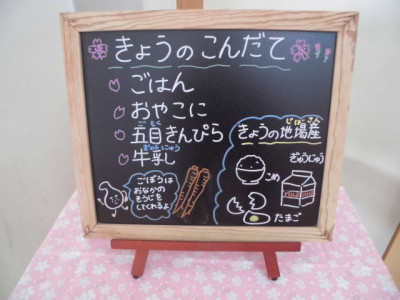 きょうのこんだて
ごはん
おやこに
五目きんぴら
ごもく
牛乳
ぎゅうにゅう
きょうの地場産
じばさん
こめ
ぎゅうじゅう
たまご
ごぼうは
おなかの
そうじを
してくれるよ